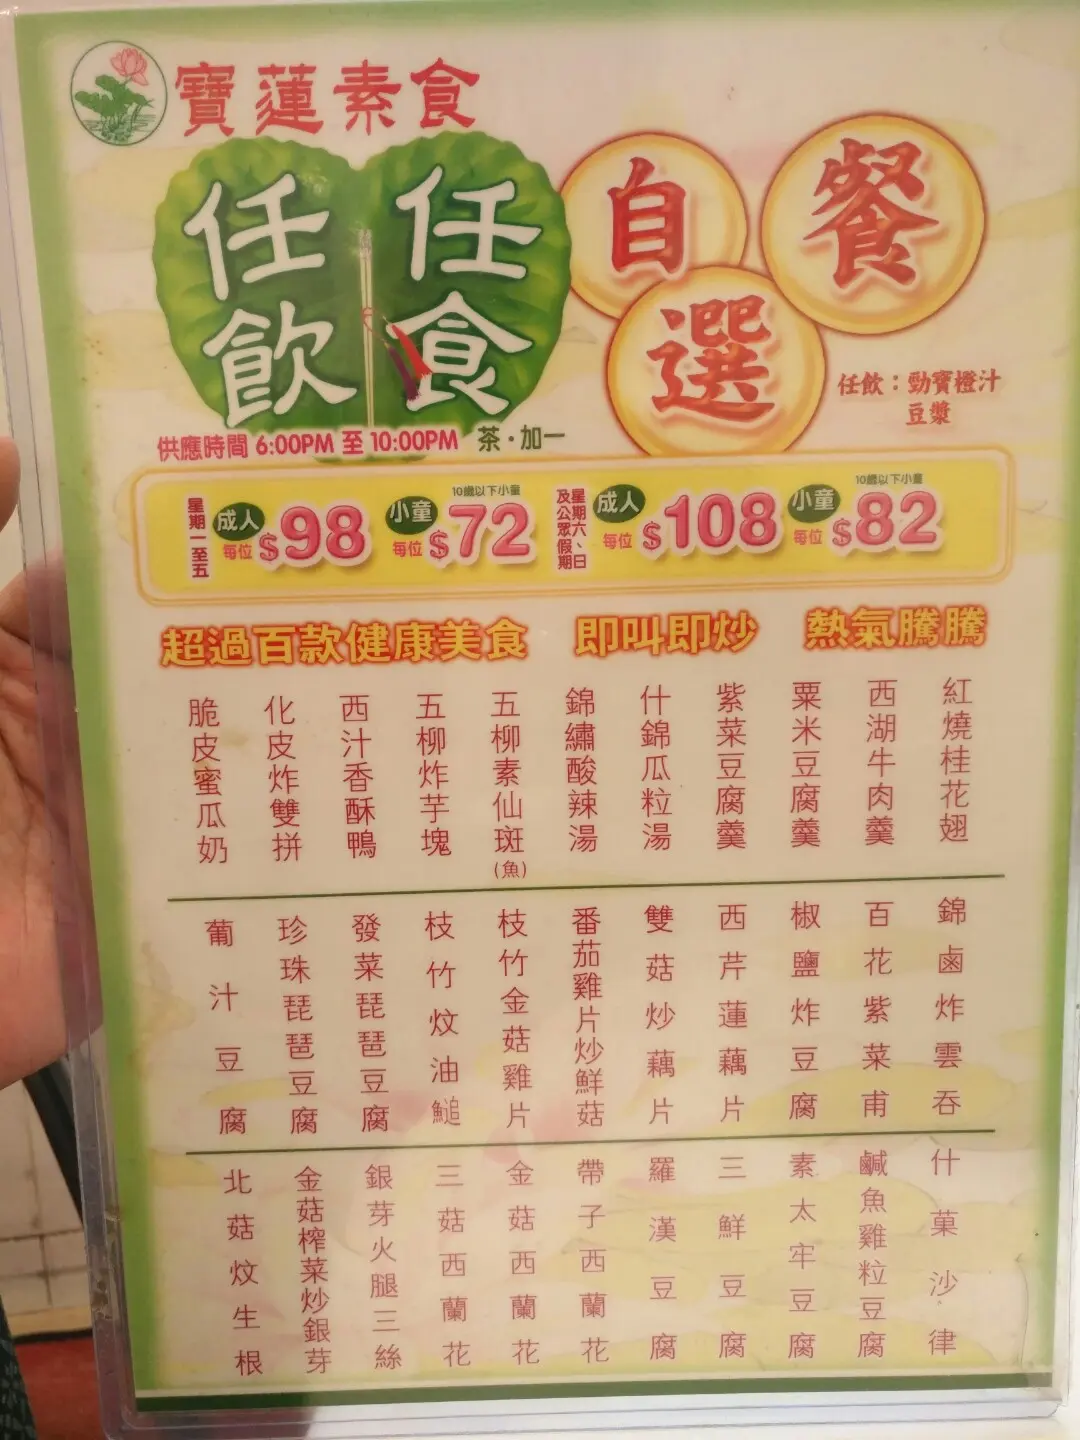 寶蓮素食
任食
任飲
自選餐
任飲：勁寶橙汁
豆漿
供應時間 6:00PM 至 10:00PM 茶·加一
星期一至五
成人
每位 $98
10歲以下小童
小童
每位 $72
星期六、日
及公眾假期
成人
每位 $108
10歲以下小童
小童
每位 $82
超過百款健康美食 即叫即炒 熱氣騰騰
紅燒桂花翅
西湖牛肉羹
粟米豆腐羹
紫菜豆腐羹
什錦瓜粒湯
錦繡酸辣湯
五柳素仙斑(魚)
五柳炸芋塊
西汁香酥鴨
化皮炸雙拼
脆皮蜜瓜奶
錦鹵炸雲吞
百花紫菜甫
椒鹽炸豆腐
西芹蓮藕片
雙菇炒藕片
番茄雞片炒鮮菇
枝竹金菇雞片
枝竹炆油䱽
發菜琵琶豆腐
珍珠琵琶豆腐
葡汁豆腐
什菓沙律
鹹魚雞粒豆腐
素太牢豆腐
三鮮豆腐
羅漢豆腐
帶子西蘭花
金菇西蘭花
三菇西蘭花
銀芽火腿三絲
金菇榨菜炒銀芽
北菇炆生根